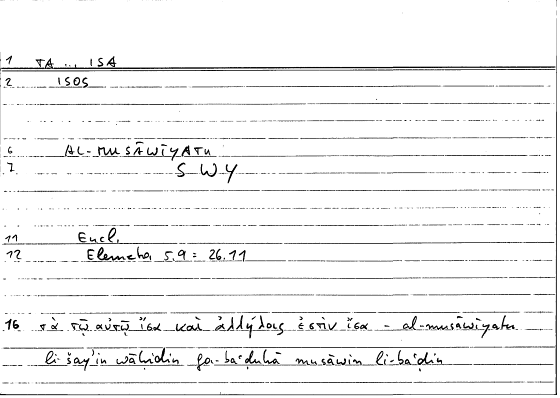 1 TA ... ISA
2 ISOS
6 AL-MUSĀWĪYATU
7 S W Y
11 Eucl.
12 Elementa 5.9 = 26.11
16 τὰ τῷ αὐτῷ ἴσα καὶ ἀλλήλοις ἐστὶν ἴσα - al-musāwīyatu
li-šay'in wāḥidin fa-ba'ḍuhā musāwin li-ba'ḍin